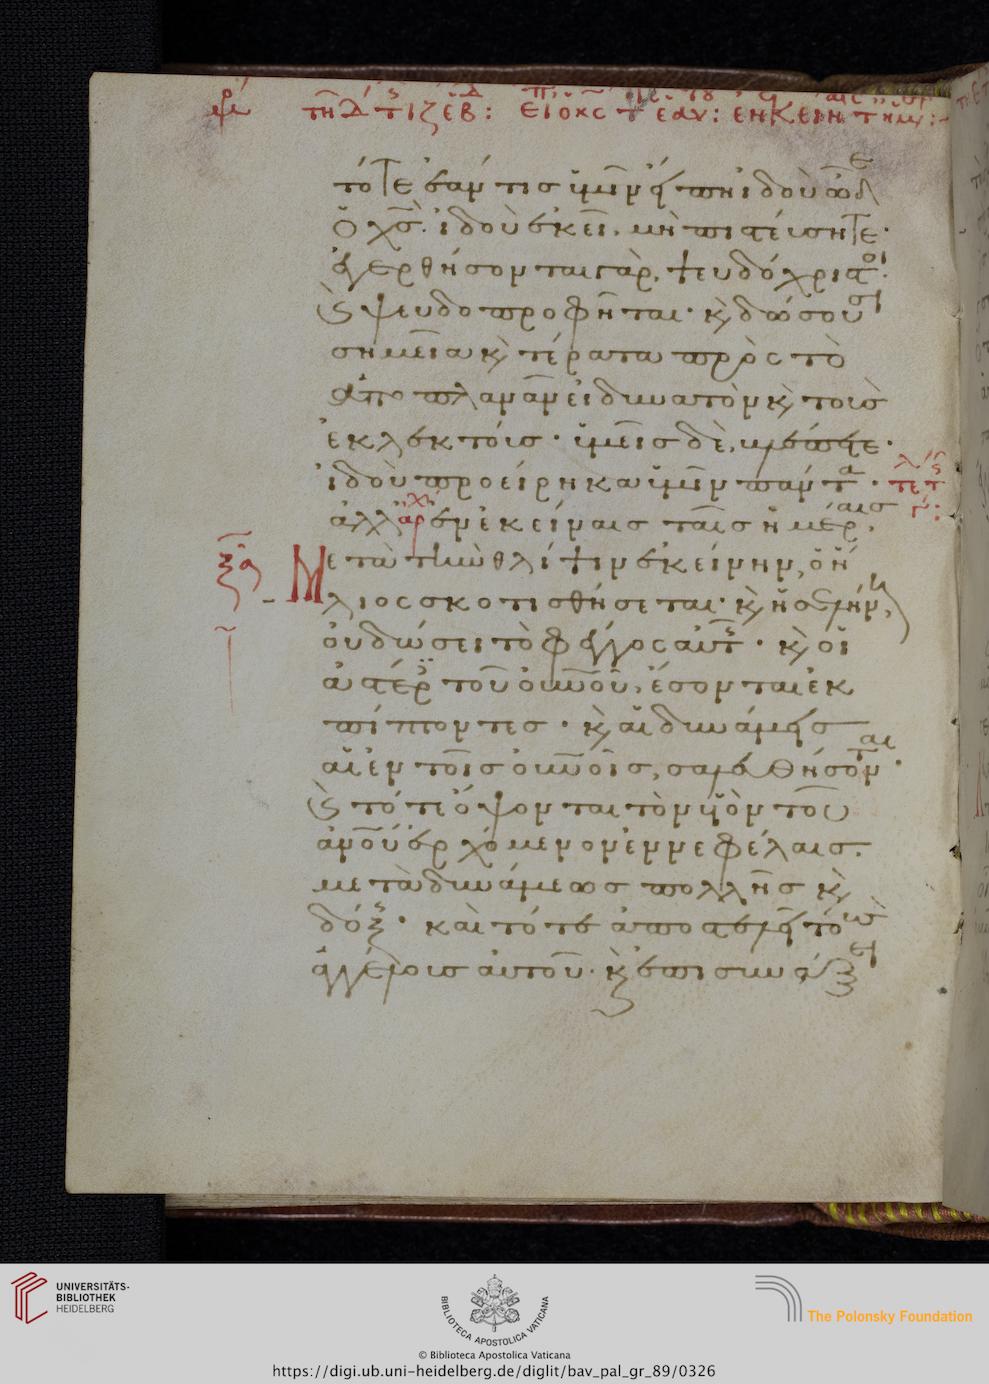 τότε ἐάν τις ὑμῖν εἴπῃ ἰδοὺ ὧδε
ὁ χς. ἰδοὺ ἐκεῖ, μὴ πιστεύσητε·
ἐγερθήσονται γὰρ, ψευδόχριστοι·
καὶ ψευδοπροφῆται· κὶ δώσουσι
σημεῖα κὶ τέρατα πρὸς τὸ
ἀποπλανᾶν εἰ δυνατὸν κὶ τοὺς
ἐκλεκτούς· ὑμεῖς δὲ, βλέπετε·
ἰδοὺ προείρηκα ὑμῖν πάντα·
ἀλλ' ἐν ἐκείναις ταῖς ἡμέραις,
Μετὰ τὴν θλίψιν ἐκείνην, ὁ ἥ
λιος σκοτισθήσεται· κὶ ἡ σελήνη,
οὐ δώσει τὸ φέγγος αὐτῆς· κὶ οἱ
ἀστέρες τοῦ οὐνοῦ, ἔσονται ἐκ
πίπτοντες· κὶ αἱ δυνάμεις
αἱ ἐν τοῖς οὐνοῖς, σαλευθήσονται·
καὶ τότε ὄψονται τὸν υἱὸν τοῦ
ανοῦ ἐρχόμενον ἐν νεφέλαις.
μετὰ δυνάμεως πολλῆς κὶ
δόξης· καὶ τότε ἀποστελεῖ τοὺς
ἀγγέλους αὐτοῦ· κὶ ἐπισυνάξει
UNIVERSITÄTS-
BIBLIOTHEK
HEIDELBERG
BIBLIOTECA APOSTOLICA VATICANA
The Polonsky Foundation
© Biblioteca Apostolica Vaticana
https://digi.ub.uni-heidelberg.de/diglit/bav_pal_gr_89/0326